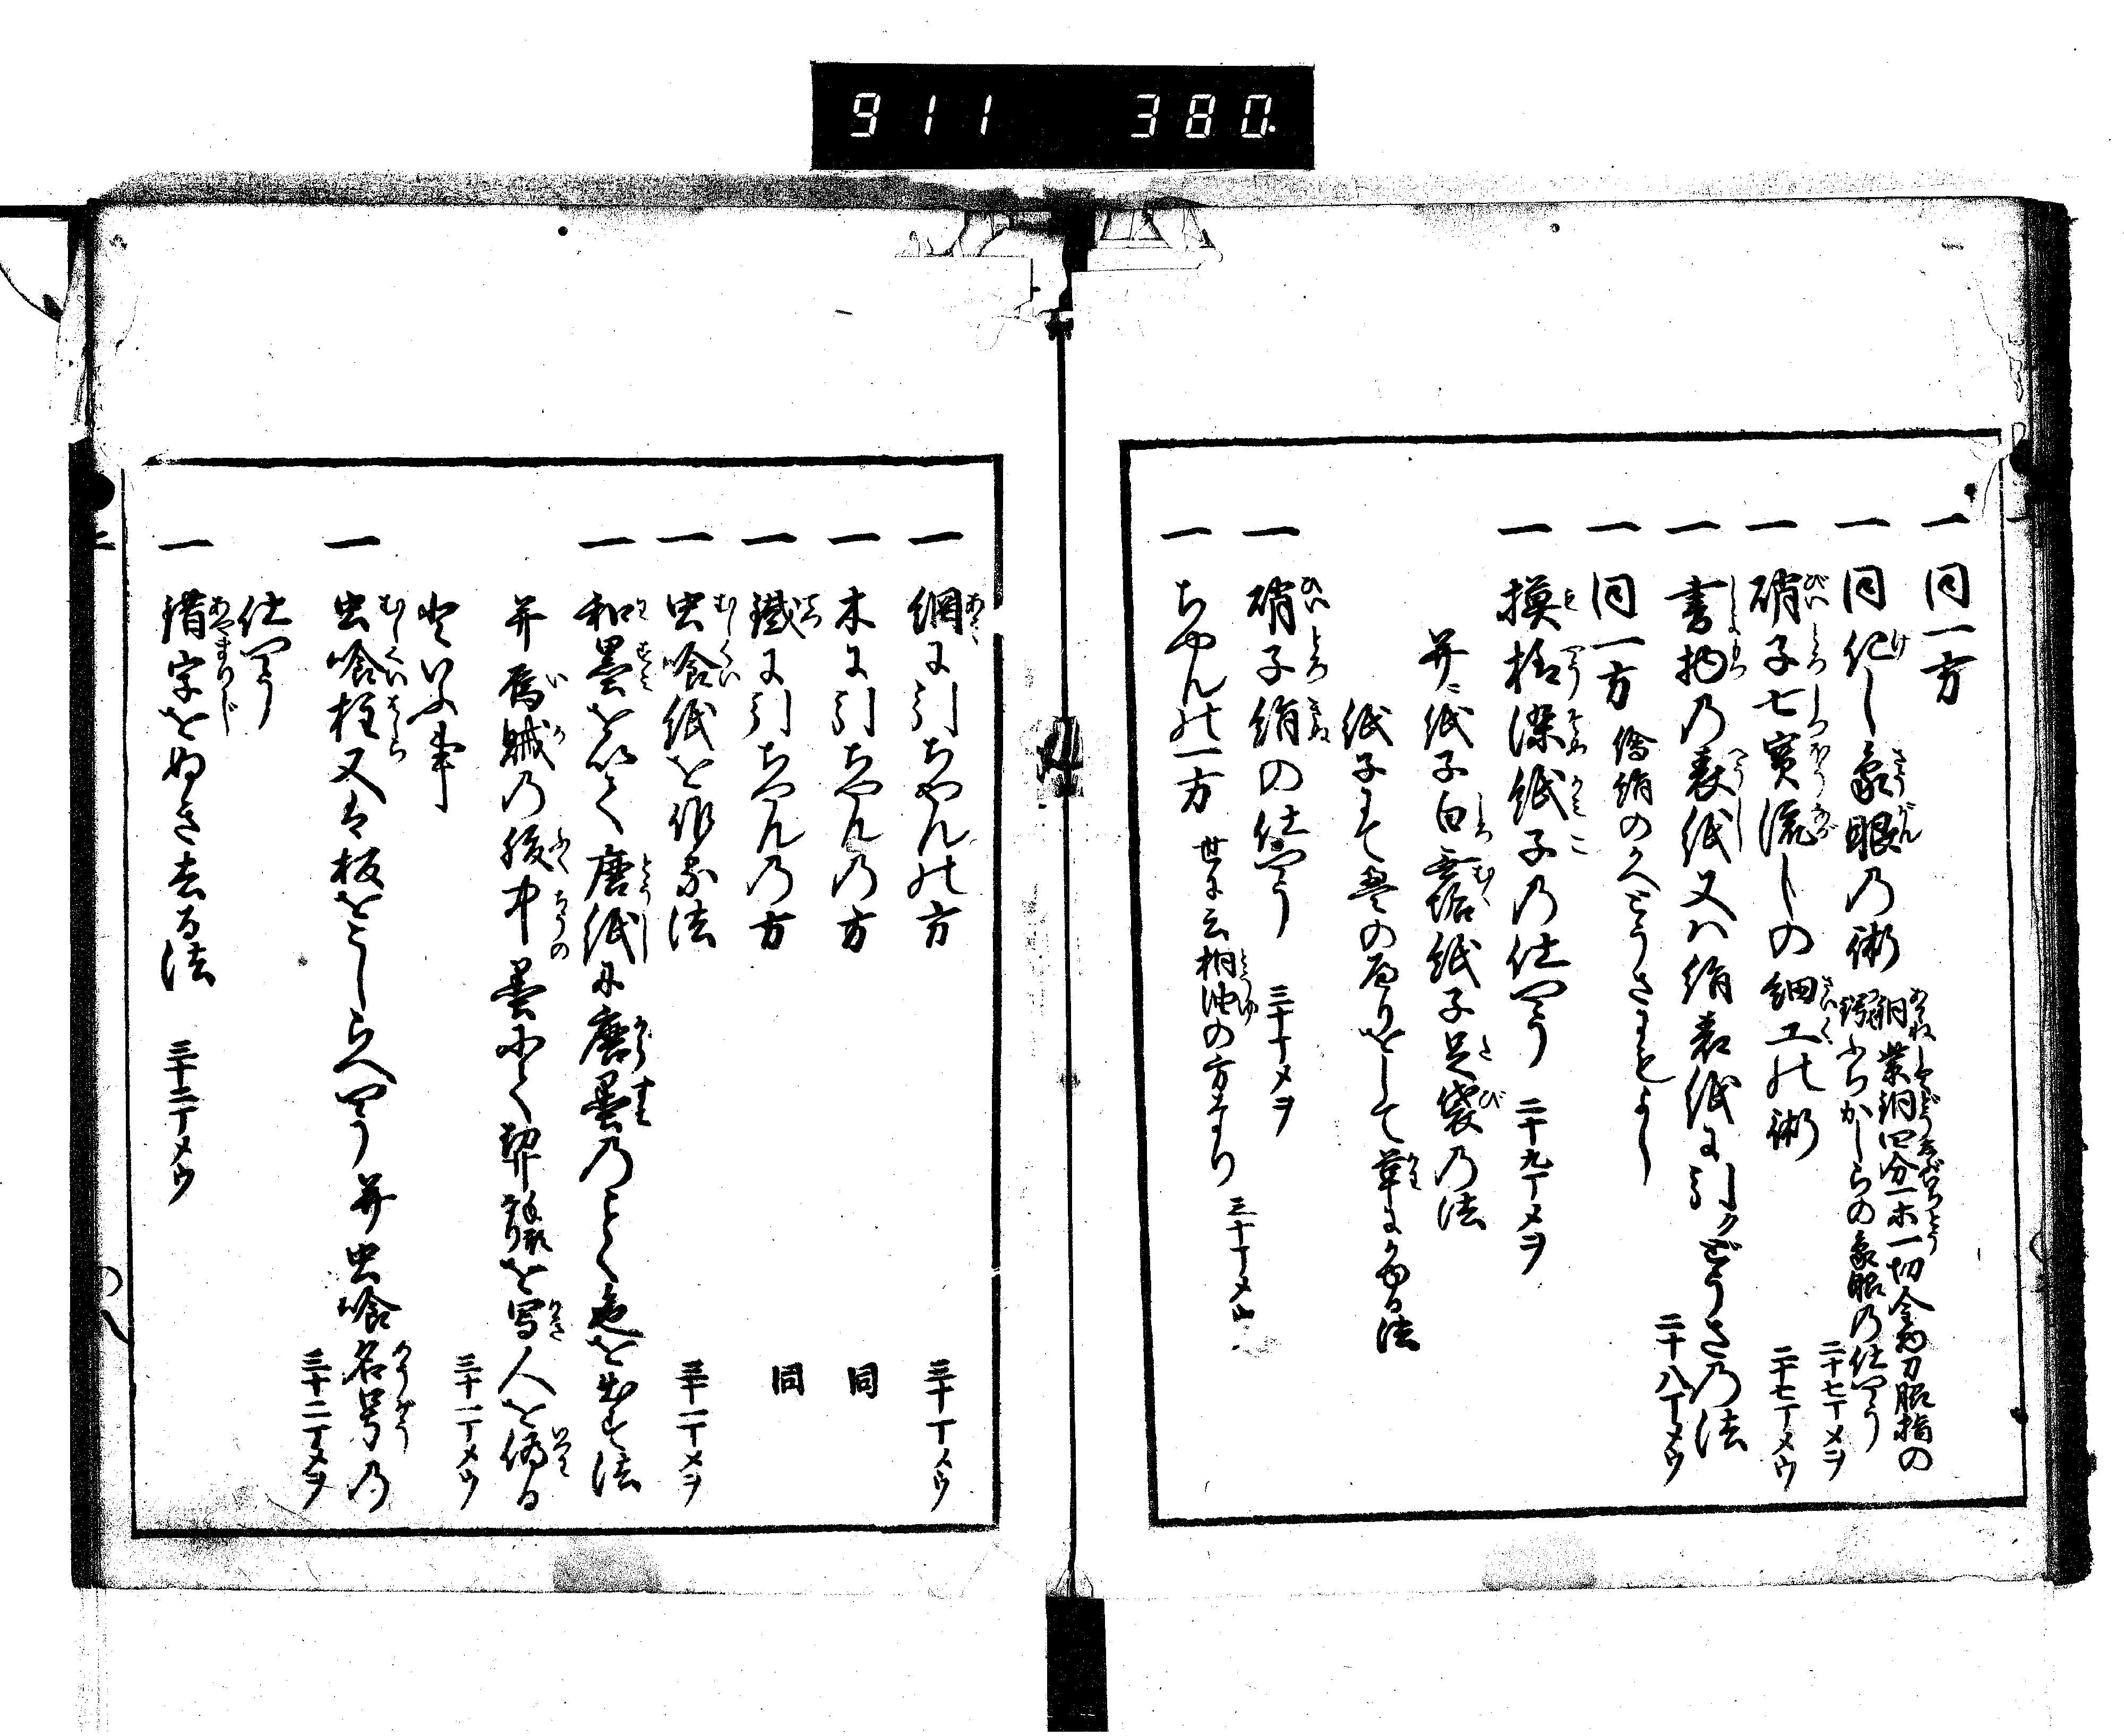 911 380
一 同一方
一 同化し象眼の術
銅紫銅四分一ホ一切金物刀脇指の
鍔ふちかしらの象眼の仕やう 二十七丁メヲ
一 硝子七宝流しの細工の術 二十七丁メウ
一 書物の表紙又ハ絹表紙に引クどうさの法 二十八丁メウ
一 同一方 絵絹のどうさ
一 摸様染紙子の仕やう 二十九丁メヲ
并ニ紙子白無垢紙子足袋の法
紙子にて法
一 硝子絹の仕やう 三十丁メヲ
一 ちやんの一方 世に云桐油の方なり 三十丁メウ
一 網に引ちやんの方 三十丁メウ
一 木に引ちやんの方 同
一 鐵に引ちやんの方 同
一 虫喰紙を作る法 三十一丁メヲ
一 和墨を以て唐紙に唐墨のごとく色を出す法
并烏賊の腹中墨にて證を写人を偽る
といふ事 三十一丁メウ
一 虫喰柱又は板をこしらへやう并虫喰名号の
仕やう 三十二丁メヲ
一 錯字をぬき去る法 三十二丁メウ